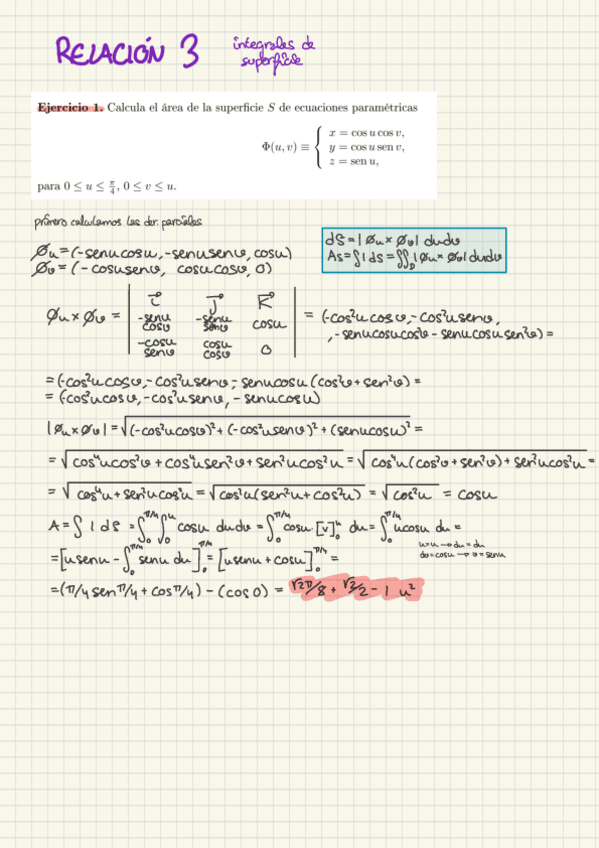 RELACIÓN 3
integrales de
superficie
Ejercicio 1. Calcula el área de la superficie S de ecuaciones paramétricas
Φ(u, v) ≡ { x = cos u cos v,
y = cos u sen v,
z = sen u,
para 0 ≤ u ≤ π/4, 0 ≤ v ≤ u.
primero calculamos las der. parciales
Øu = (-senu cosu, -senu senv, cosu)
Øv = (-cosu senv, cosu cosv, 0)
dS = |Øu × Øv| du dv
As = ∫1 ds = ∬D |Øu × Øv| du dv
Øu × Øv = | i j k
-senu cosv -senu senv cosu
-cosu senv cosu cosv 0 | = (-cos²u cosv, -cos²u senv,
, -senu cosu cos²v - senu cosu sen²v) =
= (-cos²u cosv, -cos²u senv, -senu cosu (cos²v + sen²v) =
= (-cos²u cosv, -cos²u senv, -senu cosu)
|Øu × Øv| = √(-cos²u cosv)² + (-cos²u senv)² + (senu cosu)² =
= √cos⁴u cos²v + cos⁴u sen²v + sen²u cos²u = √cos⁴u (cos²v + sen²v) + sen²u cos²u =
= √cos⁴u + sen²u cos²u = √cos²u (sen²u + cos²u) = √cos²u = cosu
A = ∫ 1 dS = ∫₀^π/4 ∫₀^u cosu du dv = ∫₀^π/4 cosu [v]₀^u du = ∫₀^π/4 u cosu du =
u = u → du = du
dv = cosu → v = senu
= [u senu - ∫₀^π/4 senu du]₀^π/4 = [u senu + cosu]₀^π/4 =
= (π/4 sen π/4 + cos π/4) - (cos 0) = √2π/8 + √2/2 - 1 u²